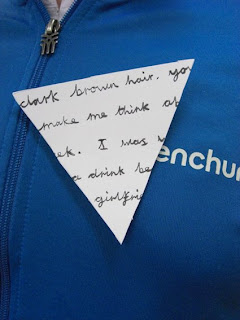 dark brown hair. you
make me think ab
ek. I was w
a drink be
girlfrie
enchu